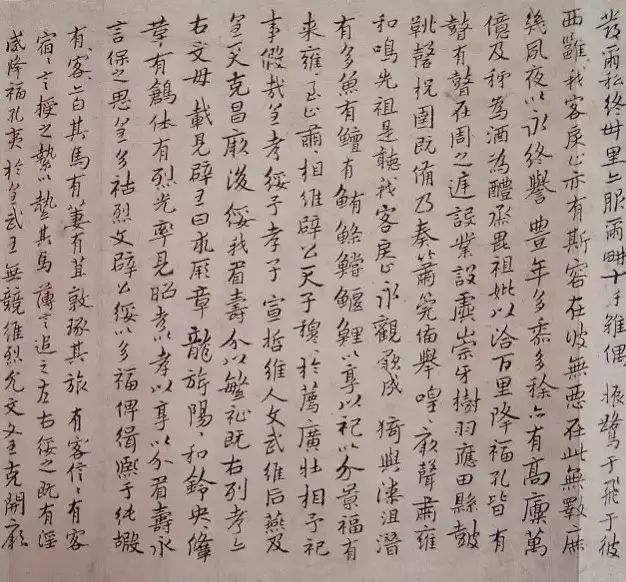 發爾私終卅里亦服爾畊十千維偶 振鷺于飛于彼
西雝我客戾止亦有斯容在彼無惡在此無斁庶
幾夙夜以永終譽 豐年多黍多稌亦有高廩萬
億及秭為酒為醴烝畀祖妣以洽百里降福孔皆 有
瞽有瞽在周之庭設業設虡崇牙樹羽應田縣鼓
鞉磬柷圉既備乃奏簫管備舉喤〻厥聲肅雍
和鳴先祖是聽我客戾止永觀厥成 猗與漆沮潛
有多魚有鱣有鮪鰷鱨鰋鯉以享以祀以介景福 有
來雍〻至止肅〻相維辟公天子穆〻於薦廣壯相予祀
事假哉皇考綏予孝子宣哲維人文武維后燕及
皇天克昌厥後綏我眉壽介以繁祉既右列考亦
右文母 載見辟王曰求厥章龍旂陽〻和鈴央〻鞗
革有鶬休有烈光率見昭考以孝以享以介眉壽永
言保之思皇多祜烈文辟公綏以多福俾緝熙于純嘏
有客〻亦白其馬有萋有苴敦琢其旅 有客信〻有客
宿〻言授之縶以縶其馬薄言追之左右綏之既有淫
威降福孔夷 於皇武王無競維烈允文文王克開厥